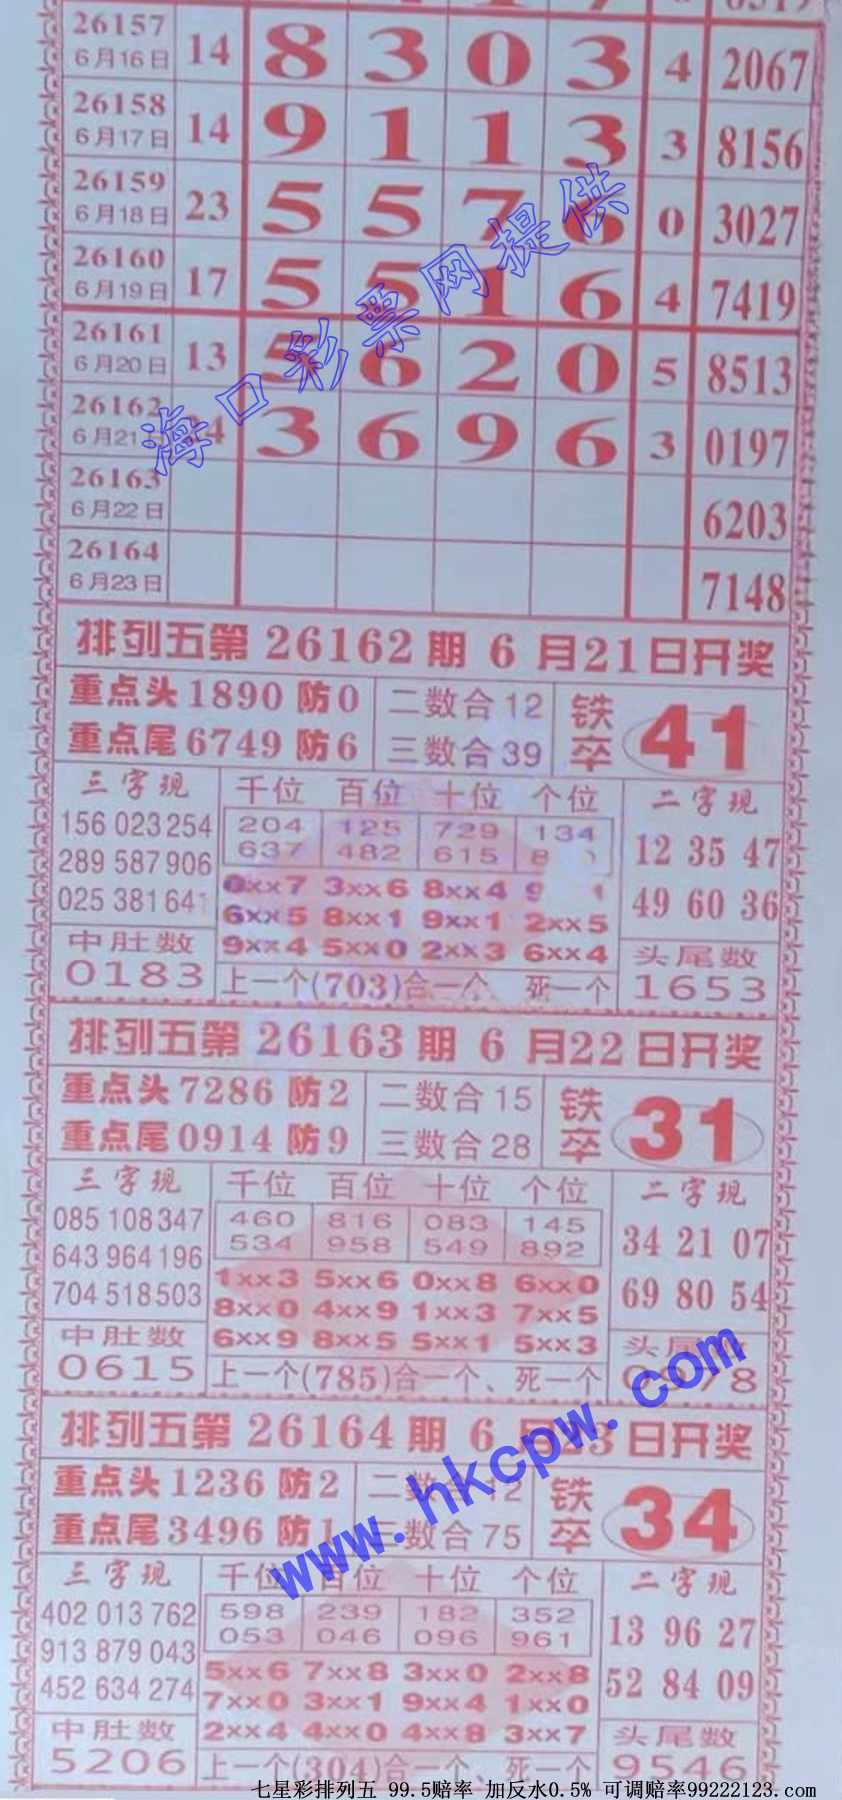 26157
6月16日 14 8 3 0 3 4 2067
26158
6月17日 14 9 1 1 3 3 8156
26159
6月18日 23 5 5 7 6 0 3027
26160
6月19日 17 5 5 1 6 4 7419
26161
6月20日 13 5 6 2 0 5 8513
26162
6月21 3 6 9 6 3 0197
26163
6月22日 6203
26164
6月23日 7148
海口彩票网提供
排列五第 26162 期 6 月21日开奖
重点头1890 防0 二数合12 铁卒 41
重点尾6749 防6 三数合39
三字现 千位 百位 十位 个位 二字现
156 023 254 204 125 729 134 12 35 47
289 587 906 637 482 615
025 381 641 0xx7 3xx6 8xx4 49 60 36
6xx5 8xx1 9xx1 2xx5
中肚数 9xx4 5xx0 2xx3 6xx4 头尾数
0183 上一个(703)合一个、死一个 1653
排列五第 26163 期 6 月22日开奖
重点头7286 防2 二数合15 铁卒 31
重点尾0914 防9 三数合28
三字现 千位 百位 十位 个位 二字现
085 108 347 460 816 083 145 34 21 07
643 964 196 534 958 549 892
704 518 503 1xx3 5xx6 0xx8 6xx0 69 80 54
8xx0 4xx9 1xx3 7xx5
中肚数 6xx9 8xx5 5xx1 5xx3 头尾数
0615 上一个(785)合一个、死一个 0978
排列五第 26164 期 6 月23日开奖
重点头1236 防2 二数合12 铁卒 34
重点尾3496 防1 三数合75
三字现 千位 百位 十位 个位 二字现
402 013 762 598 239 182 352 13 96 27
913 879 043 053 046 096 961
452 634 274 5xx6 7xx8 3xx0 2xx8 52 84 09
7xx0 3xx1 9xx4 1xx0
中肚数 2xx4 4xx0 4xx8 3xx7 头尾数
5206 上一个(304)合一个、死一个 9546
www.hkcpw.com
七星彩排列五 99.5赔率 加反水0.5% 可调赔率99222123.com